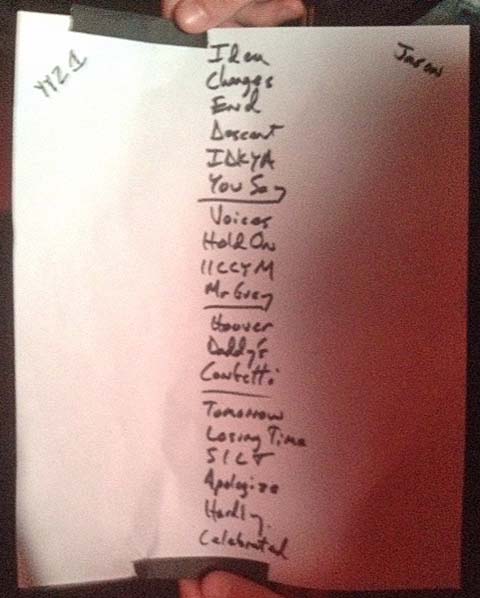 YYZ 1
Jason
Idea
Changes
End
Descent
IDKYA
You Say
Voices
Hold On
IICCYM
Mr Grey
Hoover
Daddy's
Confetti
Tomorrow
Losing Time
SILT
Apologize
Hardly
Celebrated